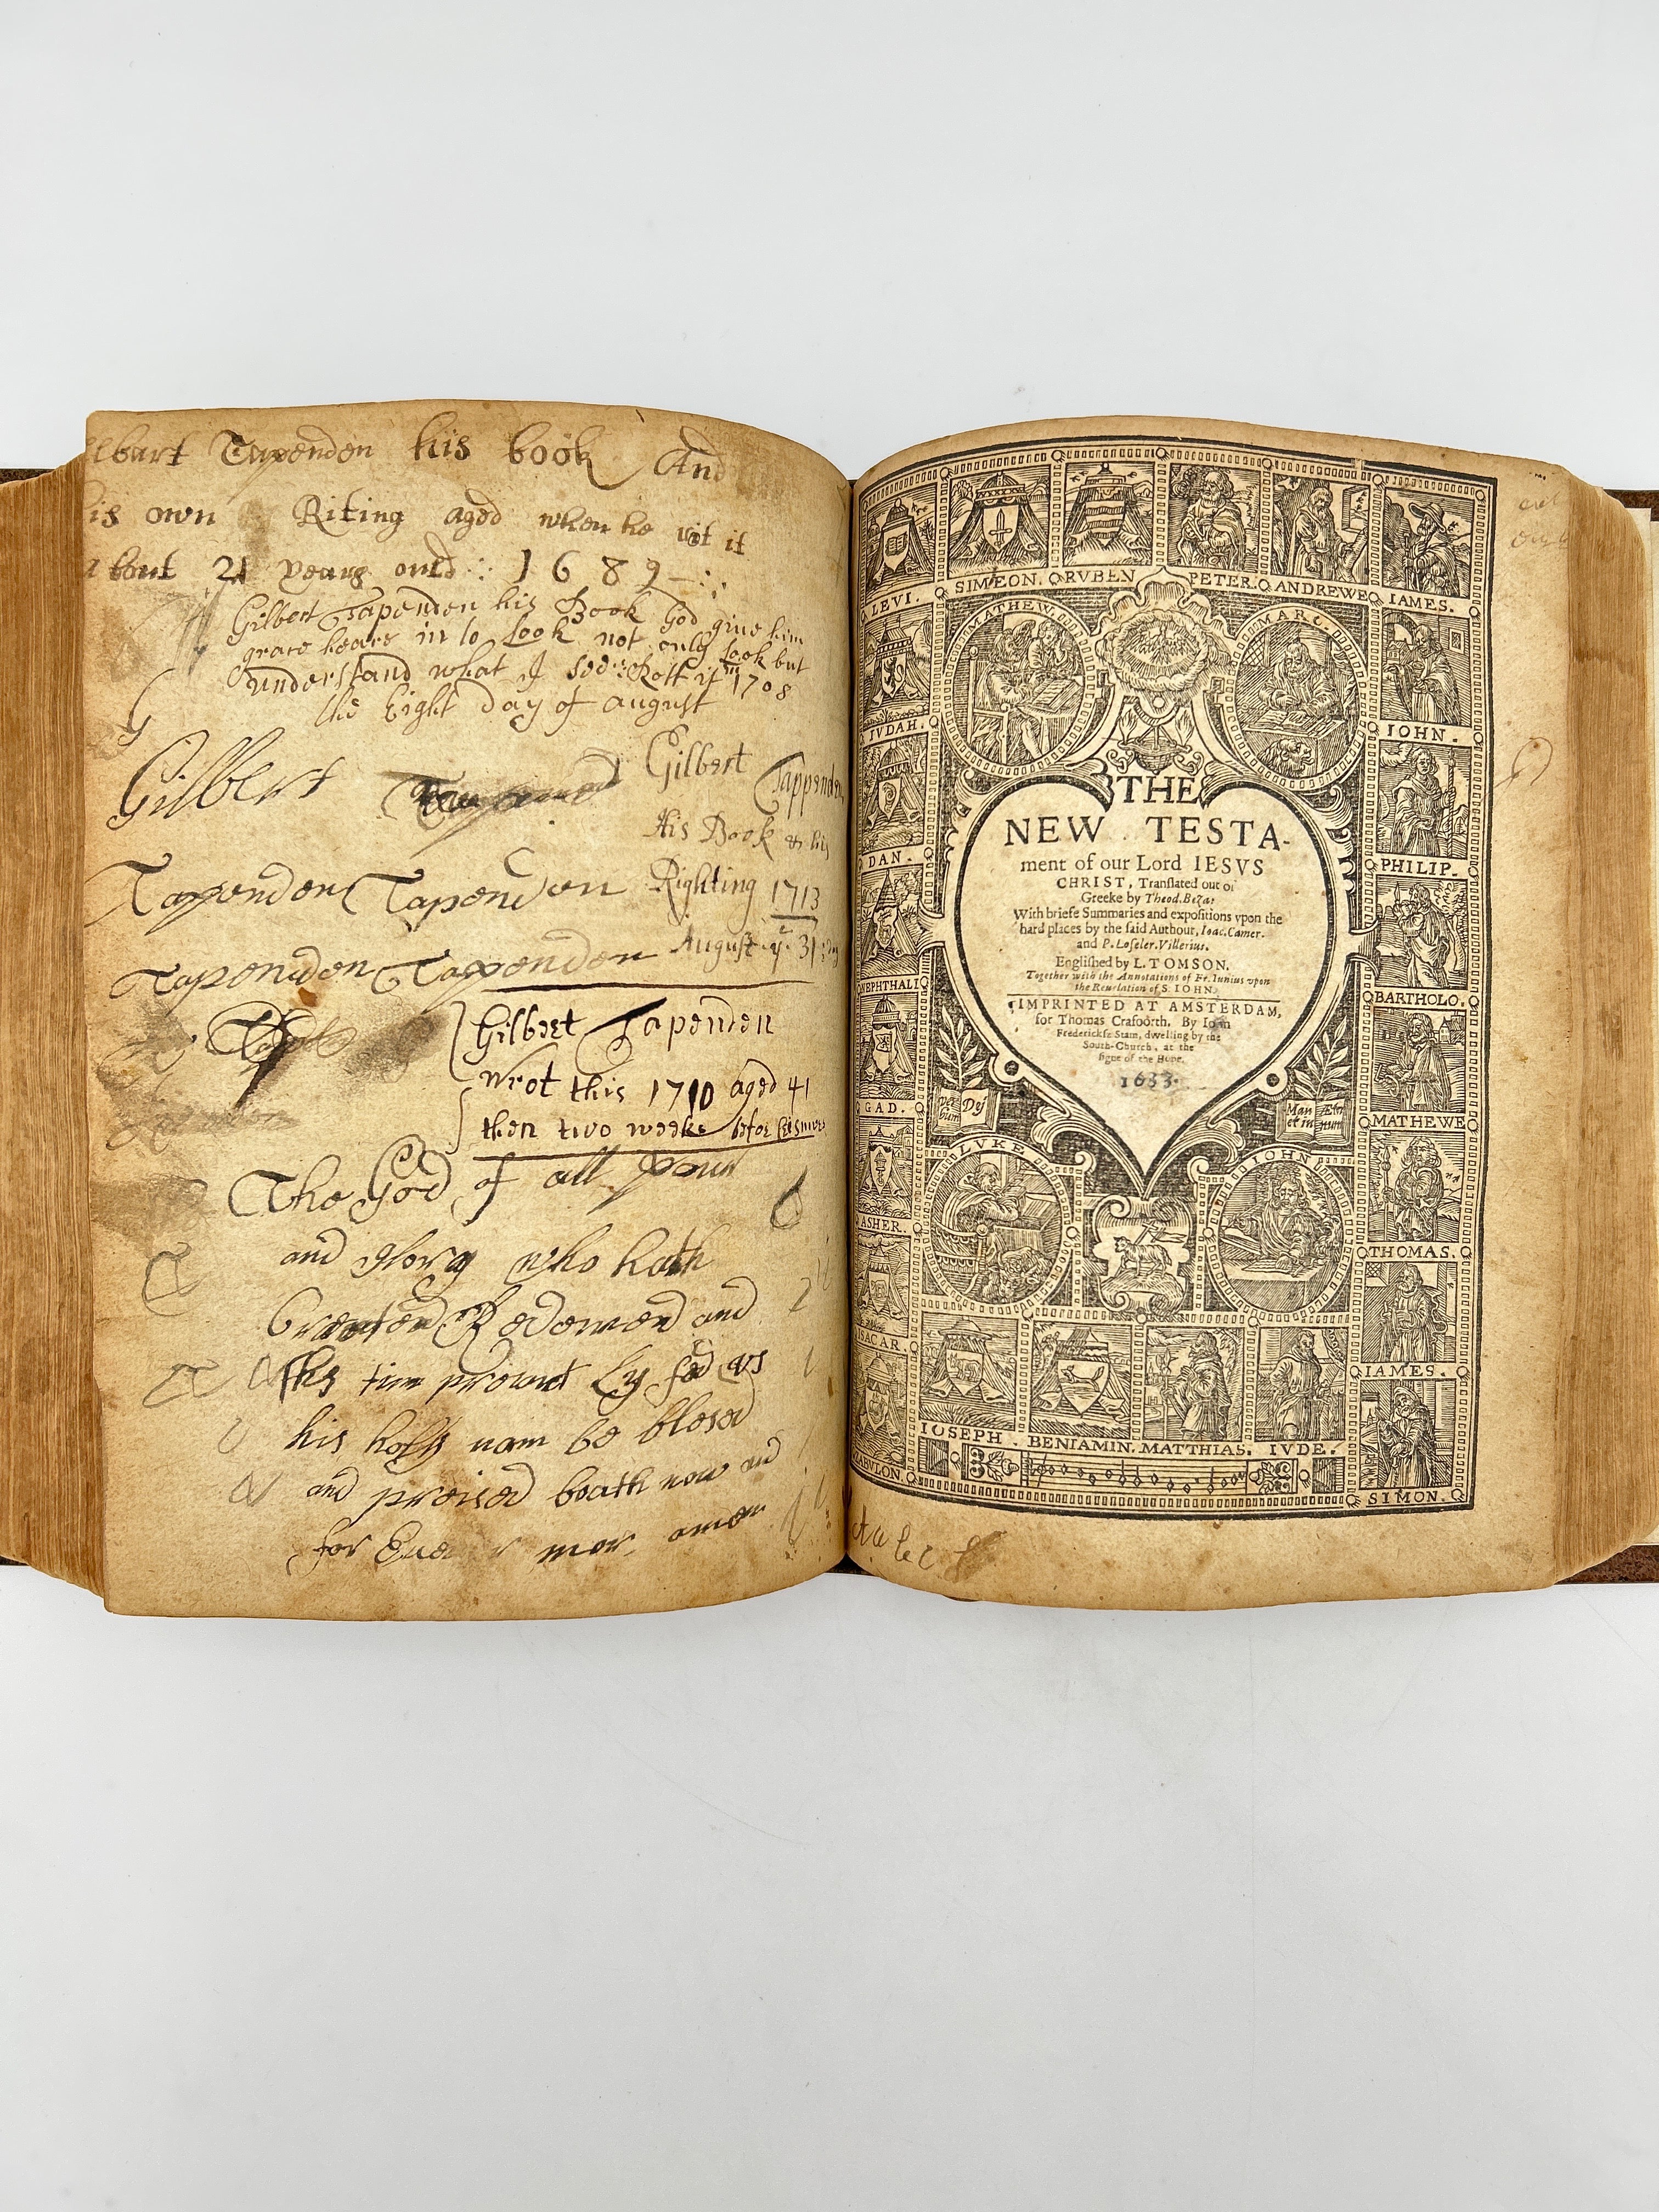 lbart Tapenden his book And
is own Riting aged when he rit it
about 21 years ould 1689
Gilbert Tapenden his Book God give him
grace heare in to Look not only Look but
understand what I see Rott it in 1708
the Eight Day of august
G
Gilbert
Gilbert Tappenden
His Book & his
Righting 1713
August ye 31
Tapenden Tapenden
Tapenden Tapenden
Gilbert Tapenden
Wrot this 1710 aged 41
then two weeks befor
The God of all
and glory who hath
and
this time
his be blesed
and preised boath now and
for mor amen
LEVI. SIMEON. RVBEN PETER. ANDREWE IAMES.
MATHEW. MARC.
IVDAH. IOHN.
DAN. PHILIP.
NEPHTHALI BARTHOLO.
GAD. MATHEWE
ASHER. THOMAS.
ISACAR. IAMES.
ZABVLON. SIMON.
THE
NEW TESTA-
ment of our Lord IESVS
CHRIST, Translated out of
Greeke by Theod. Beza:
With briefe Summaries and expositions vpon the
hard places by the said Authour, Ioac. Camer.
and P. Loseler. Villerius.
Englished by L. TOMSON.
Together with the Annotations of Fr. Iunius vpon
the Reuelation of S. IOHN.
IMPRINTED AT AMSTERDAM,
for Thomas Crafoorth. By Iohn
Fredericksz Stam, dwelling by the
South-Church, at the
signe of the Hope.
1633.
LVKE IOHN
IOSEPH. BENIAMIN. MATTHIAS. IVDE.